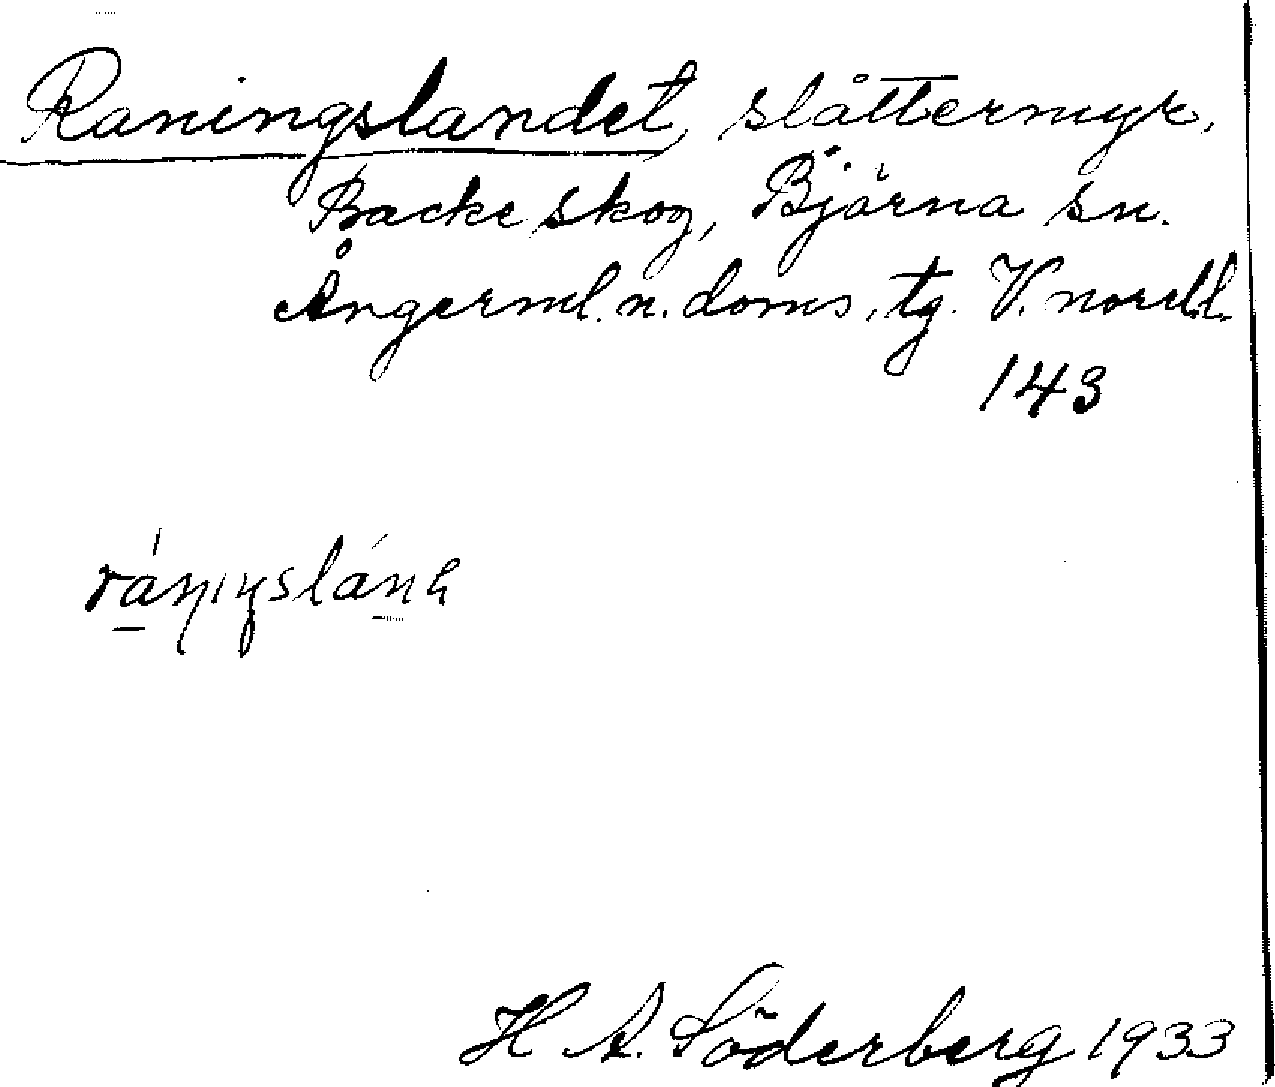 Raningslandet, slåttermyr.
Backe skog, Björna sn.
Ångerml. n. doms. tg. V. norrl.
143
H A. Söderberg 1933